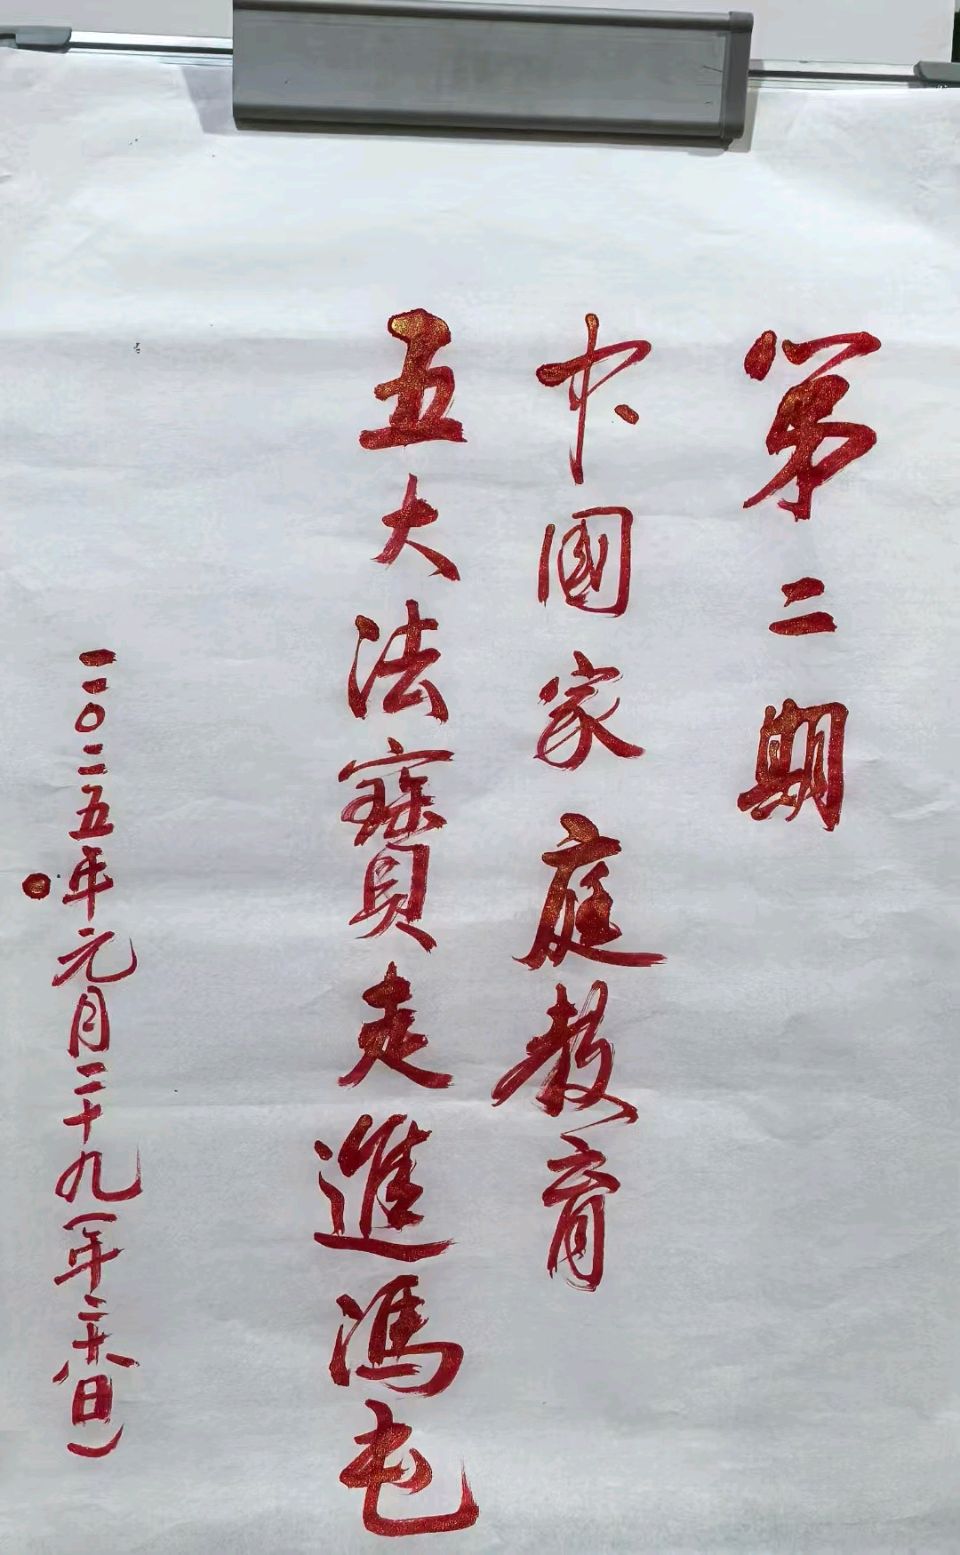 第二期
中國家庭教育
五大法寶走進馮屯
二〇二五年元月二十九(年二十八日)